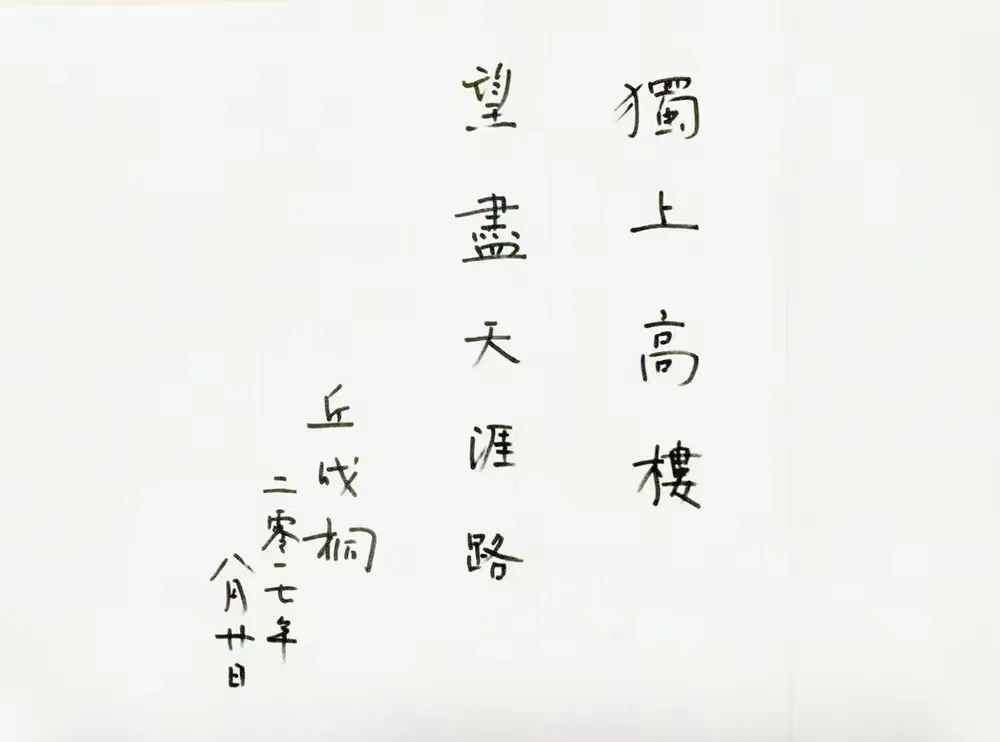 獨上高樓
望盡天涯路
丘成桐
二零一七年
八月廿日